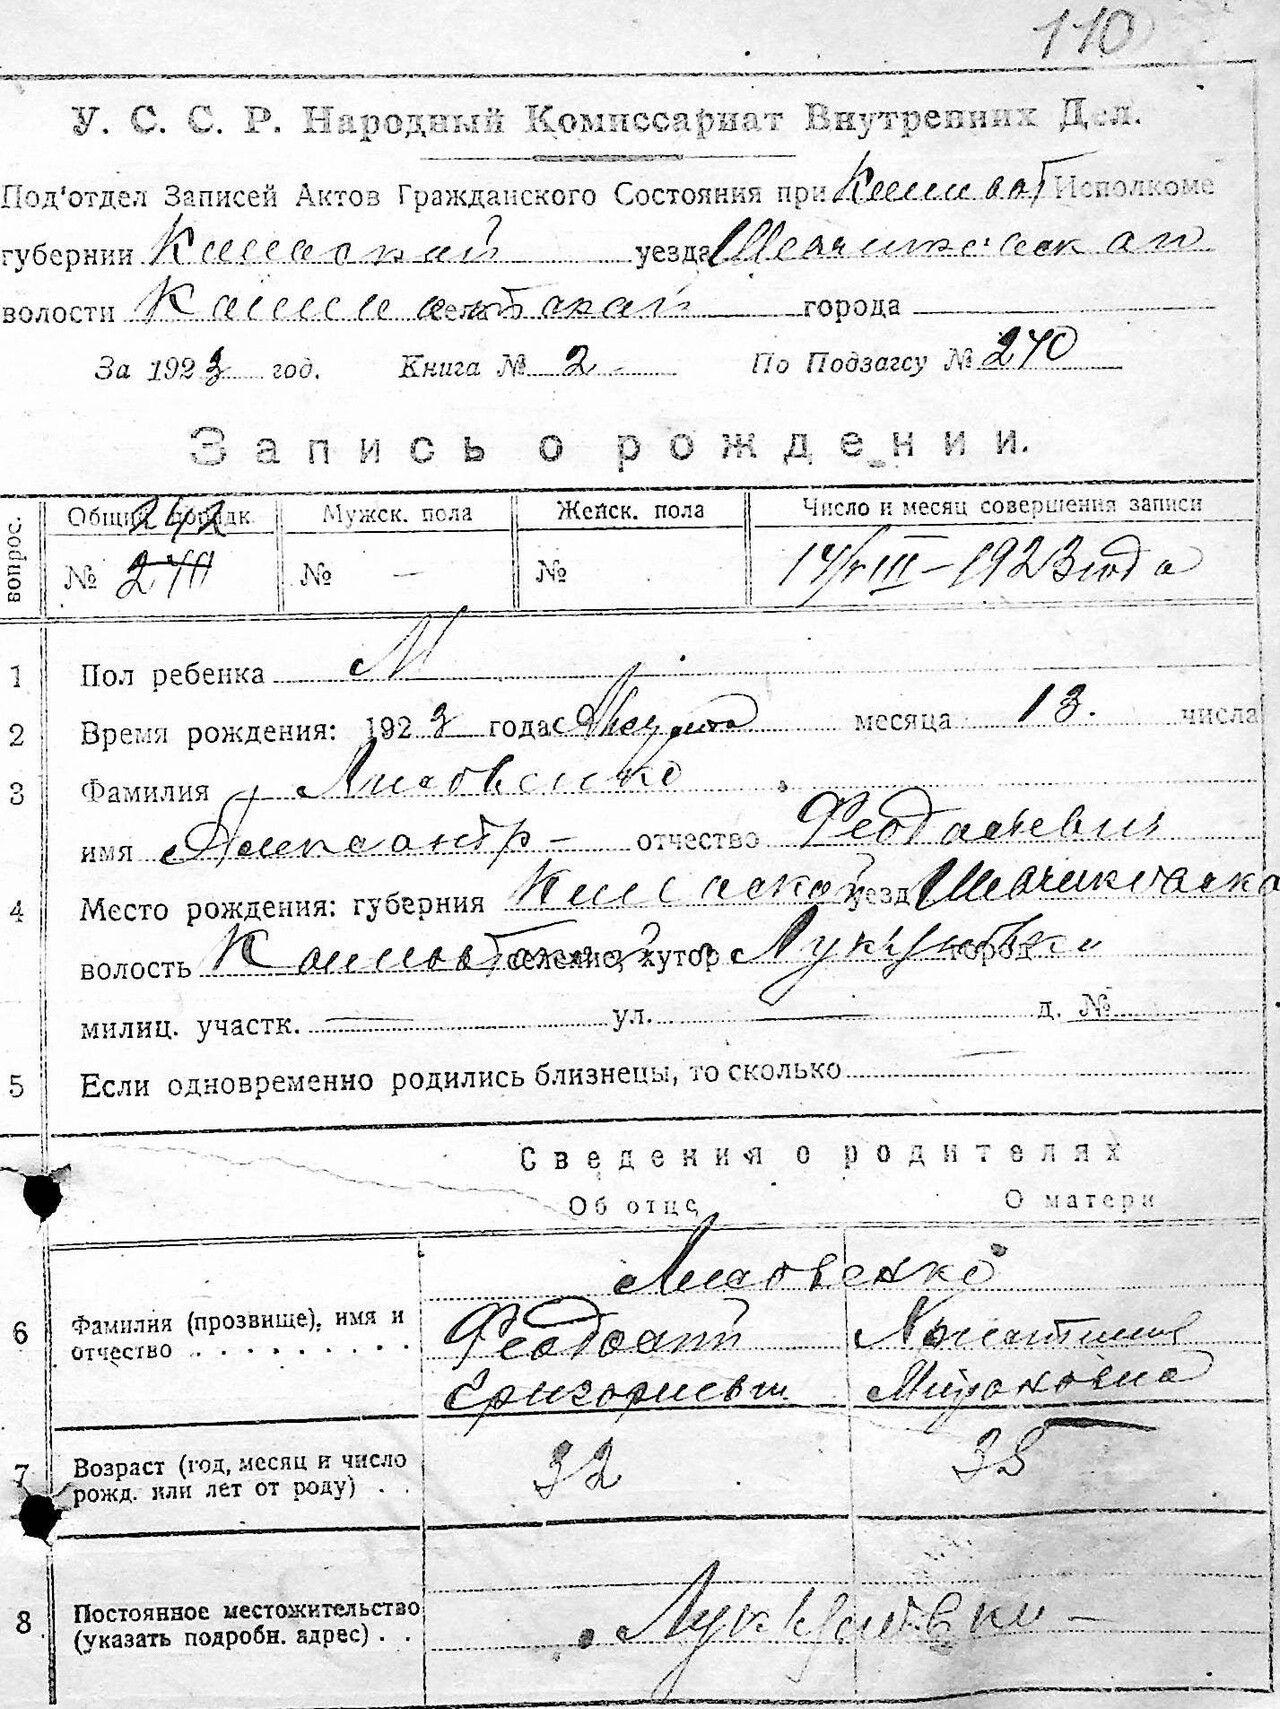 110
У. С. С. Р. Народный Комиссариат Внутренних Дел.
Под'отдел Записей Актов Гражданского Состояния при Исполкоме
губернии Киевской уезда
волости села города
За 1923 год. Книга № 2 По Подзагсу № 240
Запись о рождении.
вопрос. Общий порядк. 242 Мужск. пола Женск. пола Число и месяц совершения записи
№ 240 № — № 14/VIII – 1923 года
1 Пол ребенка М
2 Время рождения: 1923 года Августа месяца 13. числа
3 Фамилия Лисовенко
имя Александр – отчество Феодосьевич
4 Место рождения: губерния Киевской уезд
волость селение, хутор город
милиц. участк. — ул. — д. №
5 Если одновременно родились близнецы, то сколько —
Сведения о родителях
Об отце О матери
Лисовенко
6 Фамилия (прозвище), имя и Феодосий
отчество Григорьевич
7 Возраст (год, месяц и число 32 35
рожд. или лет от роду)
8 Постоянное местожительство
(указать подробн. адрес)